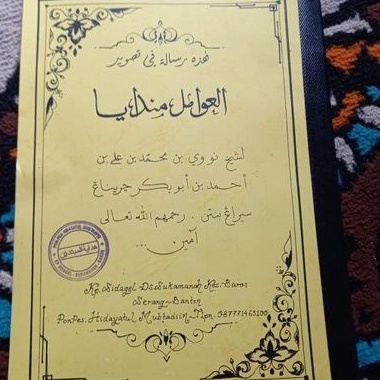 هذه رسالة في تصوير
العوامل مندايا
لشيخ نووي بن محمد بن علي بن
أحمد بن أبو بكر جريناغ
سيراغ بنتن . رحمهم الله تعالى
آمين ...
هداية المبتدئين
Kp. Sidagel Ds. Sukamanah Kec. Baros
Serang-Banten
PonPes. Hidayatul Mubtadiin, Tlpn. 087771463100